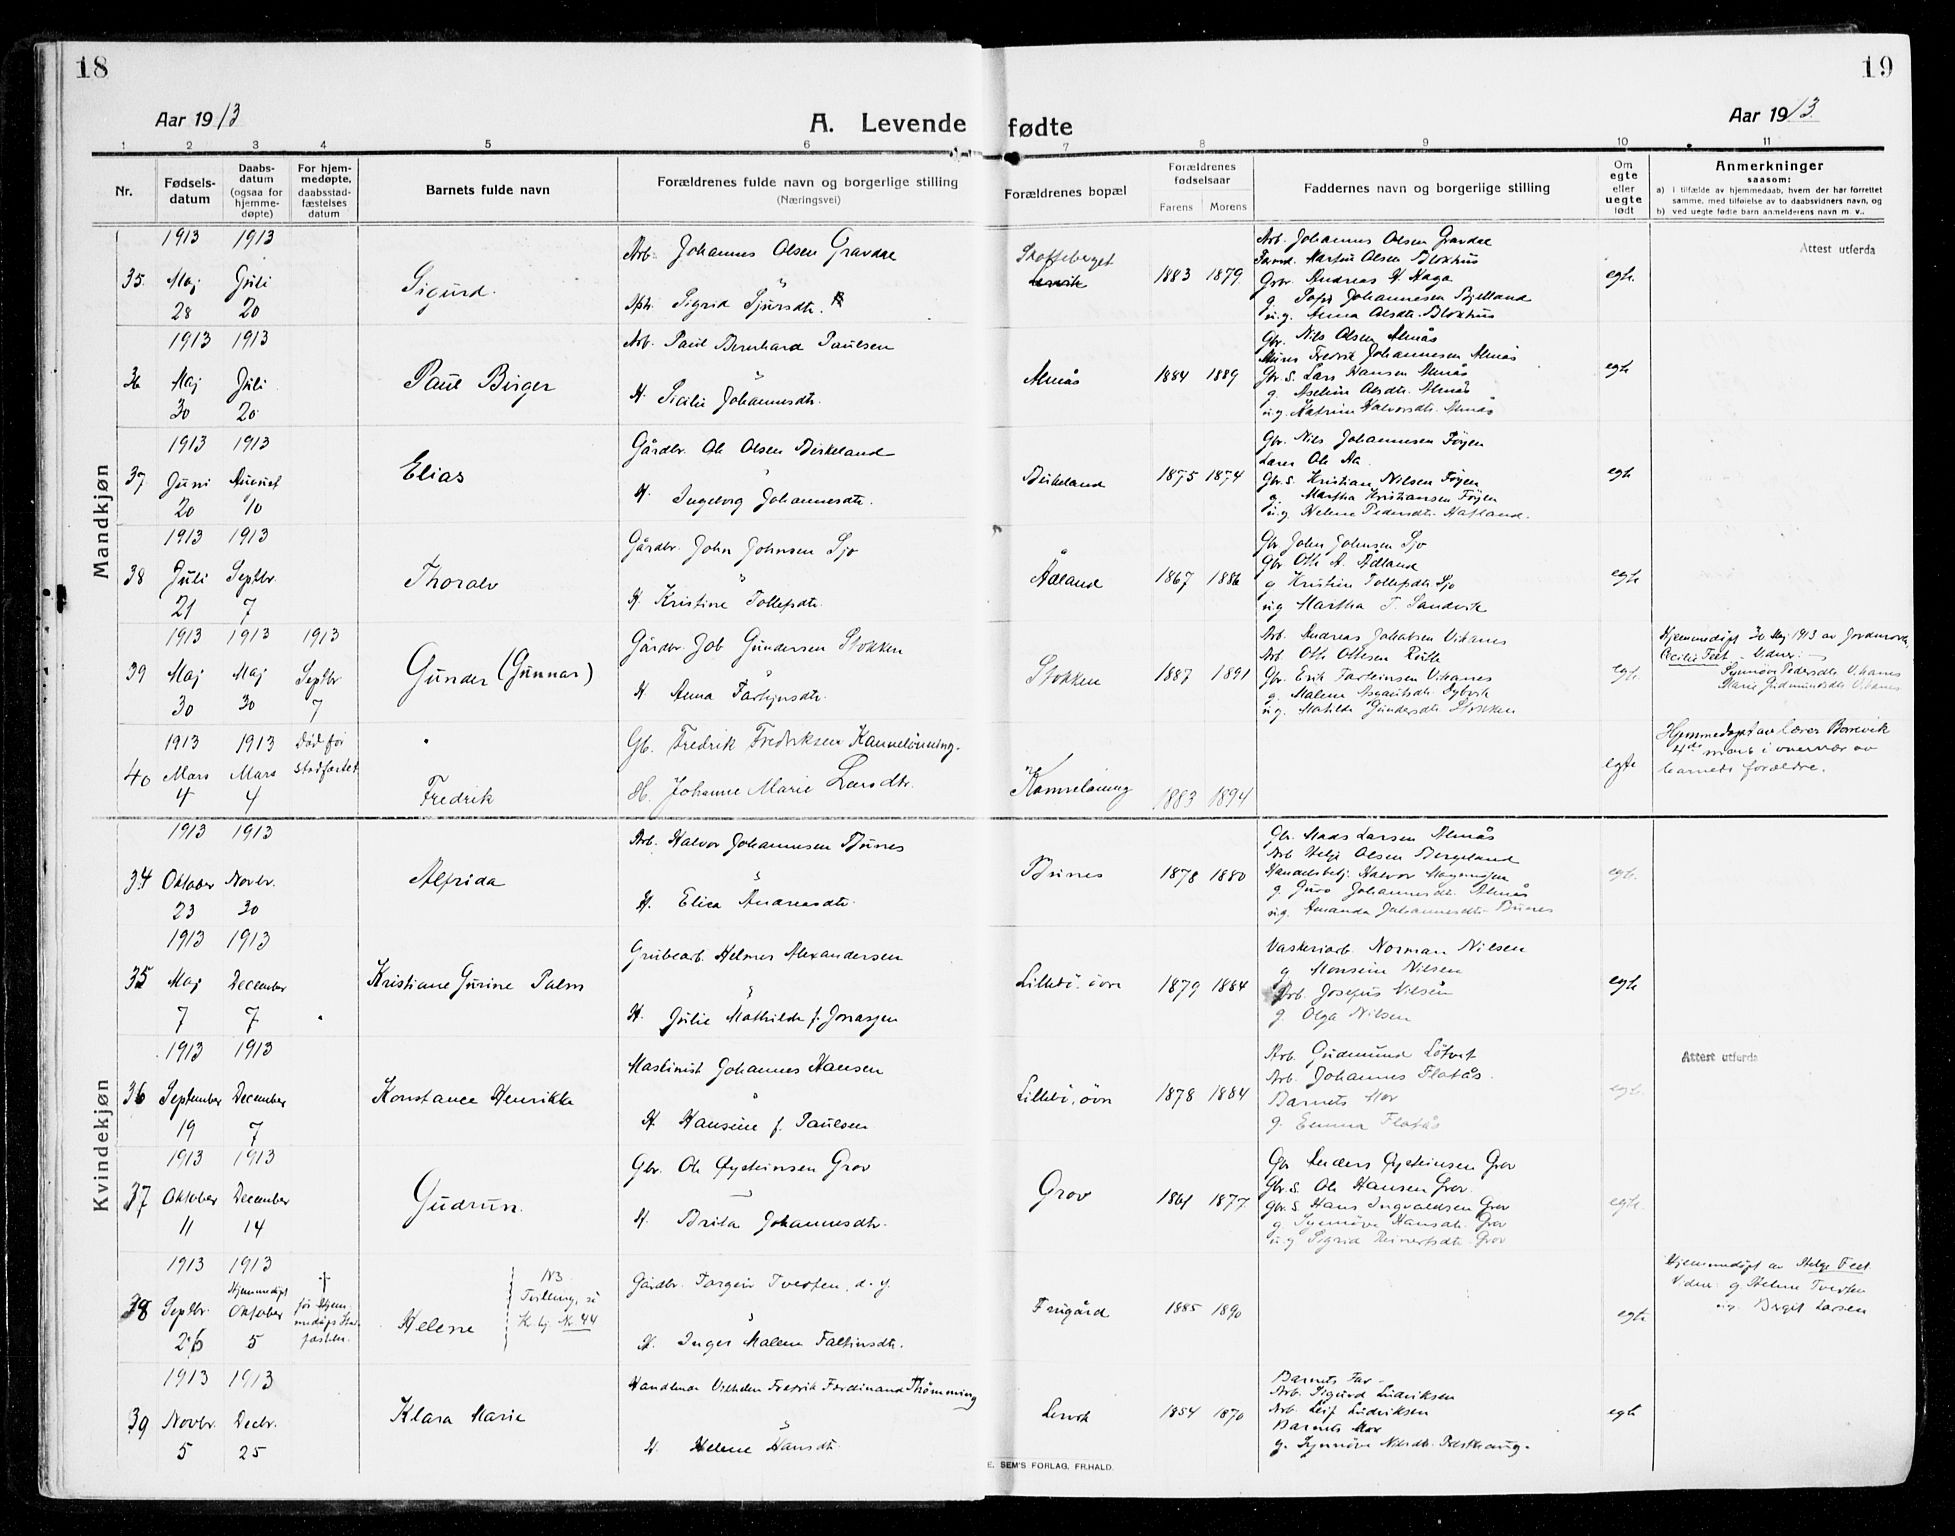 18
19
Aar 1913
A. Levende fødte
Aar 1913
1 2 3 4 5 6 7 8 9 10 11
Nr.
Fødselsdatum
Daabsdatum (ogsaa for hjemmedøpte)
For hjemmedøpte, daabsstadfæstelses datum
Barnets fulde navn
Forældrenes fulde navn og borgerlige stilling
(Næringsvei)
Forældrenes bopæl
Forældrenes fødselsaar
Farens Morens
Faddernes navn og borgerlige stilling
Om egte eller uegte født
Anmerkninger
saasom:
a) i tilfælde av hjemmedaab, hvem der har forrettet samme, med tilføielse av to daabsvidners navn, og
b) ved uegte fødte barn anmelderens navn m. v..
Mandkjøn
35. 1913 Maj 28 1913 Juli 20
Sigurd.
Arb. Johannes Olsen Gravdal
Sigrid Sjursdtr.
1883 1879
Arb. Johannes Olsen Gravdal
Martin Olsen Blokhus
Gbr. Andreas H. Haga
g. Johannesen
u.g. Anna Olsdtr. Blokhus
egte
Attest utferda
36 1913 Maj 30 1913 Juli 20
Paul Birger
Arb. Paul Bernhard Paulsen
H. Sicilie Johannesdtr.
Almås
1884 1889
Gbr. Nils Olsen Almås
Fredrik Johannesen Almås
Gbr. S. Lars Hansen Almås
g. Olsdtr. Almås
u.g. Katrine Halvorsdtr. Almås
egte
37 1913 Juni 20 1913 August 10
Elias
Gårdbr. Ole Olsen Birkeland
H. Ingeborg Johannesdtr.
Birkeland
1875 1874
Gbr. Nils Johannesen Føyen
Lærer Ole Aa.
Gbr. S. Kristian Nilsen Føyen
g. Martha Kristiansen Føyen
u.g. Helene Pedersdtr. Hafland.
egte
38 1913 Juli 21 1913 Septbr. 7
Thoralv
Gårdbr. John Johnsen Sjo
H. Kristine Tollefsdtr.
Ådland
1867 1886
Gbr John Johnsen Sjo
Gbr Otto A. Ådland
g Kristine Tollefsdtr Sjo
u.g Martha T. Sandvik
egte
39 1913 Maj 30 1913 Maj 30 1913 Septbr 7
Gunder (Gunnar)
Gårdbr. Job Gundersen Stokken
H. Anna
Stokken
1887 1891
Arb. Andreas Jakobsen Vihanes
Arb. Otto Ottesen
Gbr. Erik Vihanes
g. Malene
u.g. Mathilde Gundersdtr. Stokken
egte
Hjemmedøpt 30 Maj 1913 av Jordmor
Cecilie Feet. Vidner:
Synnøve Pedersdtr Vihanes
Marie Gudmundsdtr Vihanes
40 1913 Mars 4 1913 Mars 4 Død før stadfæstet
Fredrik
Gb. Fredrik Fredriksen Kanneløning.
H. Johanne Marie Larsdtr.
Kanneløning
1883 1894
egte
Hjemmedøpt av lærer Borrevik
4de mars i overvær av
barnets forældre.
Kvindekjøn
34 1913 Oktober 23 1913 Novbr. 30
Alfrida
Arb. Halvor Johannesen Bunes
H. Elisa Andreasdtr.
Bunes
1878 1880
Gbr. Mads Larsen Almås
Arb Helje Olsen Bergeland
Handelsbetj. Halvor Mogensen
g. Guro Johannesdtr. Almås
u.g. Amanda Johannesdtr. Bunes
egte.
35 1913 Maj 7 1913 December 7
Kristiane Gurine Palm
Grubearb. Helmer Alexandersen
H. Julie Mathilde f. Jonassen
Lillebø, övre
1879 1884
Vaskeriarb. Norman Nilsen
g Monsine Nilsen
Arb. Josefus Nilsen
g. Olga Nilsen
egte
36 1913 September 19 1913 December 7
Konstance Henrikke
Maskinist Johannes Hansen
H. Hansine f. Paulsen
Lillebø, övre
1878 1884
Arb. Gudmund Løtveit
Arb. Johannes Flatås.
Barnets Mor
g. Emma Flatås
egte.
Attest utferda
37 1913 Oktober 11 1913 December 14
Gudrun.
Gbr. Ole Øysteinsen Grov
H. Brita Johannesdtr.
Grov
1861 1877
Gbr Anders Øysteinsen Grov
Gbr. S. Ole Hansen Grov.
Gbr. S. Hans Ingvaldsen Grov
g. Synnøve Hansdtr. Grov
u.g Sigrid Reinertsdtr. Grov
egte.
38 1913 Septbr. 26 1913 Hjemmedøpt Oktober 5 † før Hjemmedåps Stadfæstelsen.
Helene
NB Tvilling, se K. bj. Nr. 44
Gårdbr. Torgeir Tveiten, d. y.
H. Inger Malene Faltinsdtr.
Frugård
1885 1890
egte
Hjemmedøpt av Helge Feet
Vidner: g Helene Tveiten
u.g. Bergit Larsen
39 1913 Novbr. 5 1913 Decbr. 25
Klara Marie
Handlende Vilhelm Fredrik Ferdinand Thømming
H. Helene Hansdtr.
Lervik
1854 1870
Barnets Far
Arb. Sigurd Ludviksen
Arb. Leif Ludviksen
Barnets Mor
g. Synnøve Nilsdtr.
egte
E. SEM'S FORLAG, FR.HALD.